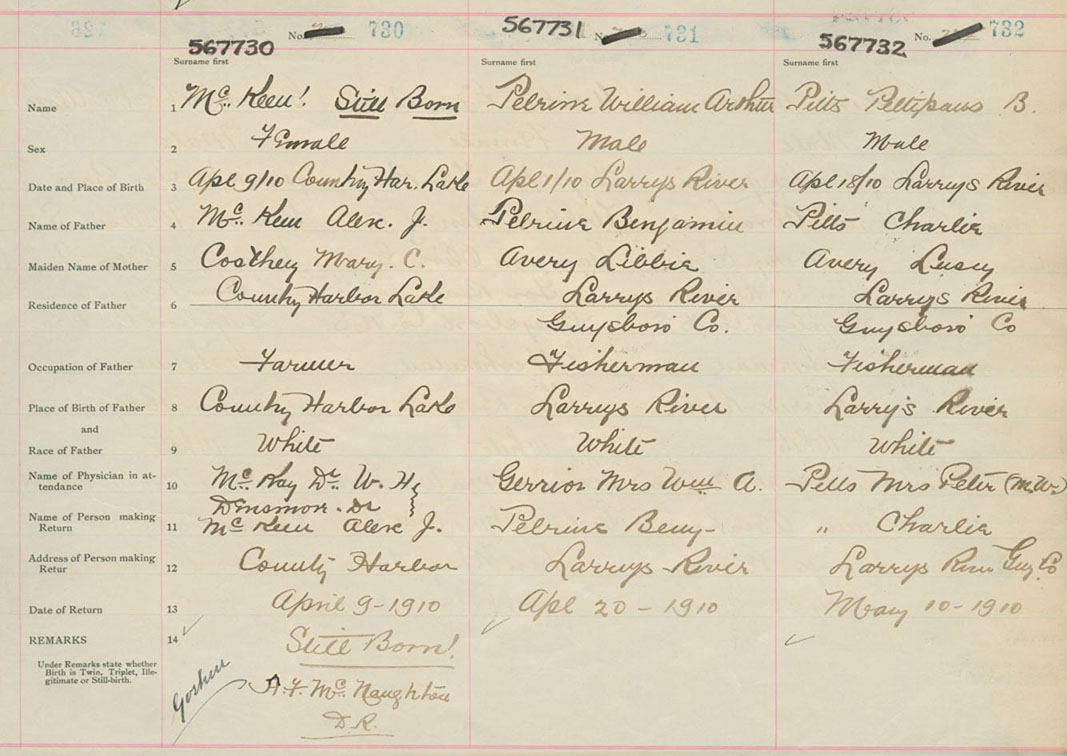 567730 No. 730 567731 No. 731 567732 No. 732
Surname first Surname first Surname first
Name 1 Mc. Keen! Still Born Pelrine William Arthur Pitts Petipaus B.
Sex 2 Female Male Male
Date and Place of Birth 3 Apl 9/10 Country Har. Lake Apl 1/10 Larrys River Apl 18/10 Larrys River
Name of Father 4 Mc. Keen Alex. J. Pelrine Benjamin Pitts Charlie
Maiden Name of Mother 5 Mary. C. Avery Libbie Avery Lucy
Residence of Father 6 Country Harbor Lake Larrys River Larrys River
Guysboro Co. Guysboro Co
Occupation of Father 7 Farmer Fisherman Fisherman
Place of Birth of Father 8 Country Harbor Lake Larrys River Larry's River
and
Race of Father 9 White White White
Name of Physician in at-
tendance 10 Mc. Kay Dr. W. H. Gerrior Mrs Wm A. Pitts Mrs Peter (M.W.)
Densmor. Dr
Name of Person making
Return 11 Mc Keen Alex J. Pelrine Benj- " Charlie
Address of Person making
Retur 12 County Harbor Larrys River Larrys River Guy Co
Date of Return 13 April 9-1910 Apl 20-1910 May 10-1910
REMARKS 14 Still Born!
Under Remarks state whether
Birth is Twin, Triplet, Ille-
gitimate or Still-birth.
Goshen
A. F. Mc. Naughton
D.R.